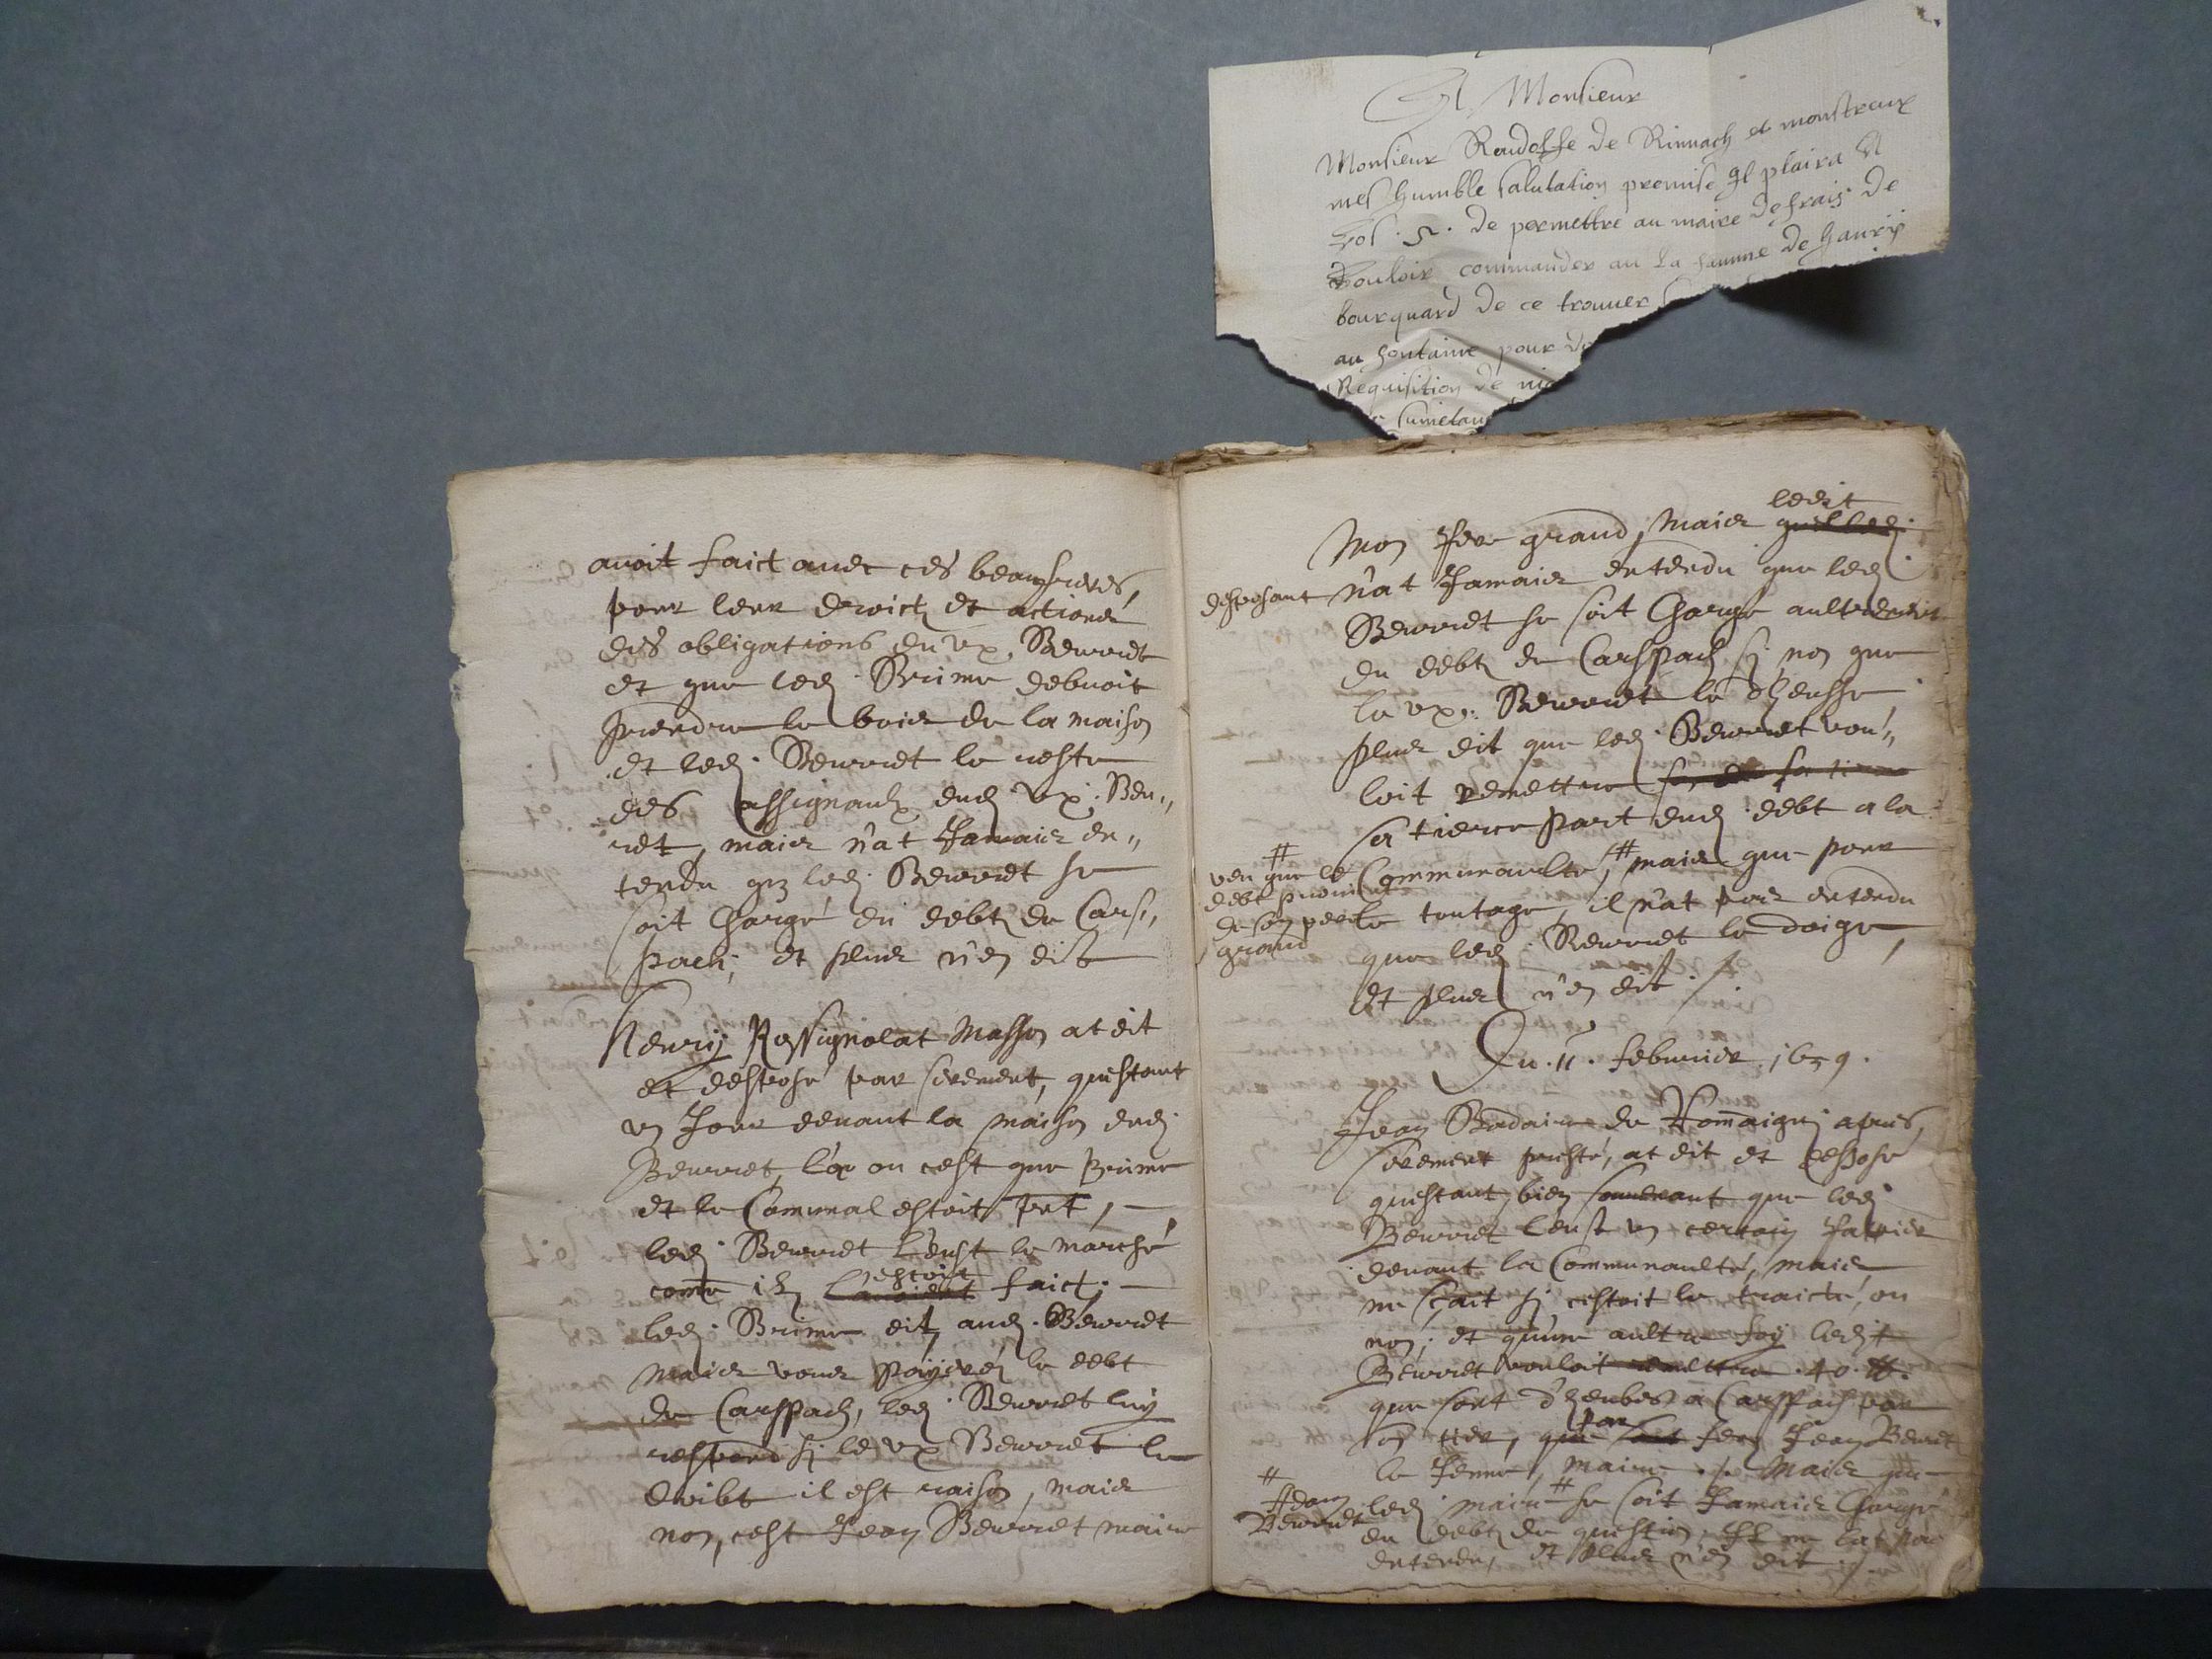 A Monsieur
Monsieur Roudolfe de Rinnach et monstreux
mes humble salutation premise Il plaira A
vos . S . de permettre au maire defrais de
vouloir commander au la famme de hanrÿ
bourquard de ce trouver
au fontaine pour
Requisition de
avoit faict avec ces beaufreres,
pour leur droict et actions
des obligations du vx. Beurret
et que led. Brime debvoit
prendre le bois de la maison
et led. Beurret le reste
des assignaulx dud vx. Beu-
ret, mais n'at Jamais en-
tendu q; led. Beurret se
soit chargé du debt de Cars-
pach; et plus n'en dit
Henrÿ Rossignolat Masson at dit
et desposé par serement, questant
un Jour devant la maison dud.
Beurret, la ou cest que Brime
et le Communal estoit pnt,
led. Beurret leust le marché
come il estoit faict;
led. Brime dit aud. Beurret
mais vous payeréz le debt
de Carspach, led. Beurret luÿ
respond si le vx Beurret le
doibt il est raison, mais
non, cest Jean Beurret maire
Mon Pere grand, Mais ledit
desposant n'at Jamais entendu que led.
Beurret se soit chargé aultrement
du debt de Carspach si non que
le vx. Beurret le dheusse,
plus dit que led. Beurret vou-
loit remettre
sa tierce part dud. debt a la
Communaulté, # mais que pour
# veu que le
debt
de son pere
grand
le toutage, il n'at pas entendu
que led. Beurret le doige,
et plus n'en dit ./.
Du .11. febvrier 1659.
Jean Bodaine de Romaigni apres
serement presté, at dit et desposé
questant bien souvenant que led.
Beurret leust un certain papier
devant la Communaulté, mais
ne sçait si cestoit le traicté, ou
non; et quune aultre foy ledit
Beurret vouloit remettre .40. ll.
que sont dheubes a Carspach par
par feu Jean Beuret
le Jeune, maire ./. Mais que
led. maire # se soit Jamais chargé
# Adam
Beurret
du debt de question, Il ne lat pas
entendu, et plus n'en dit ./.